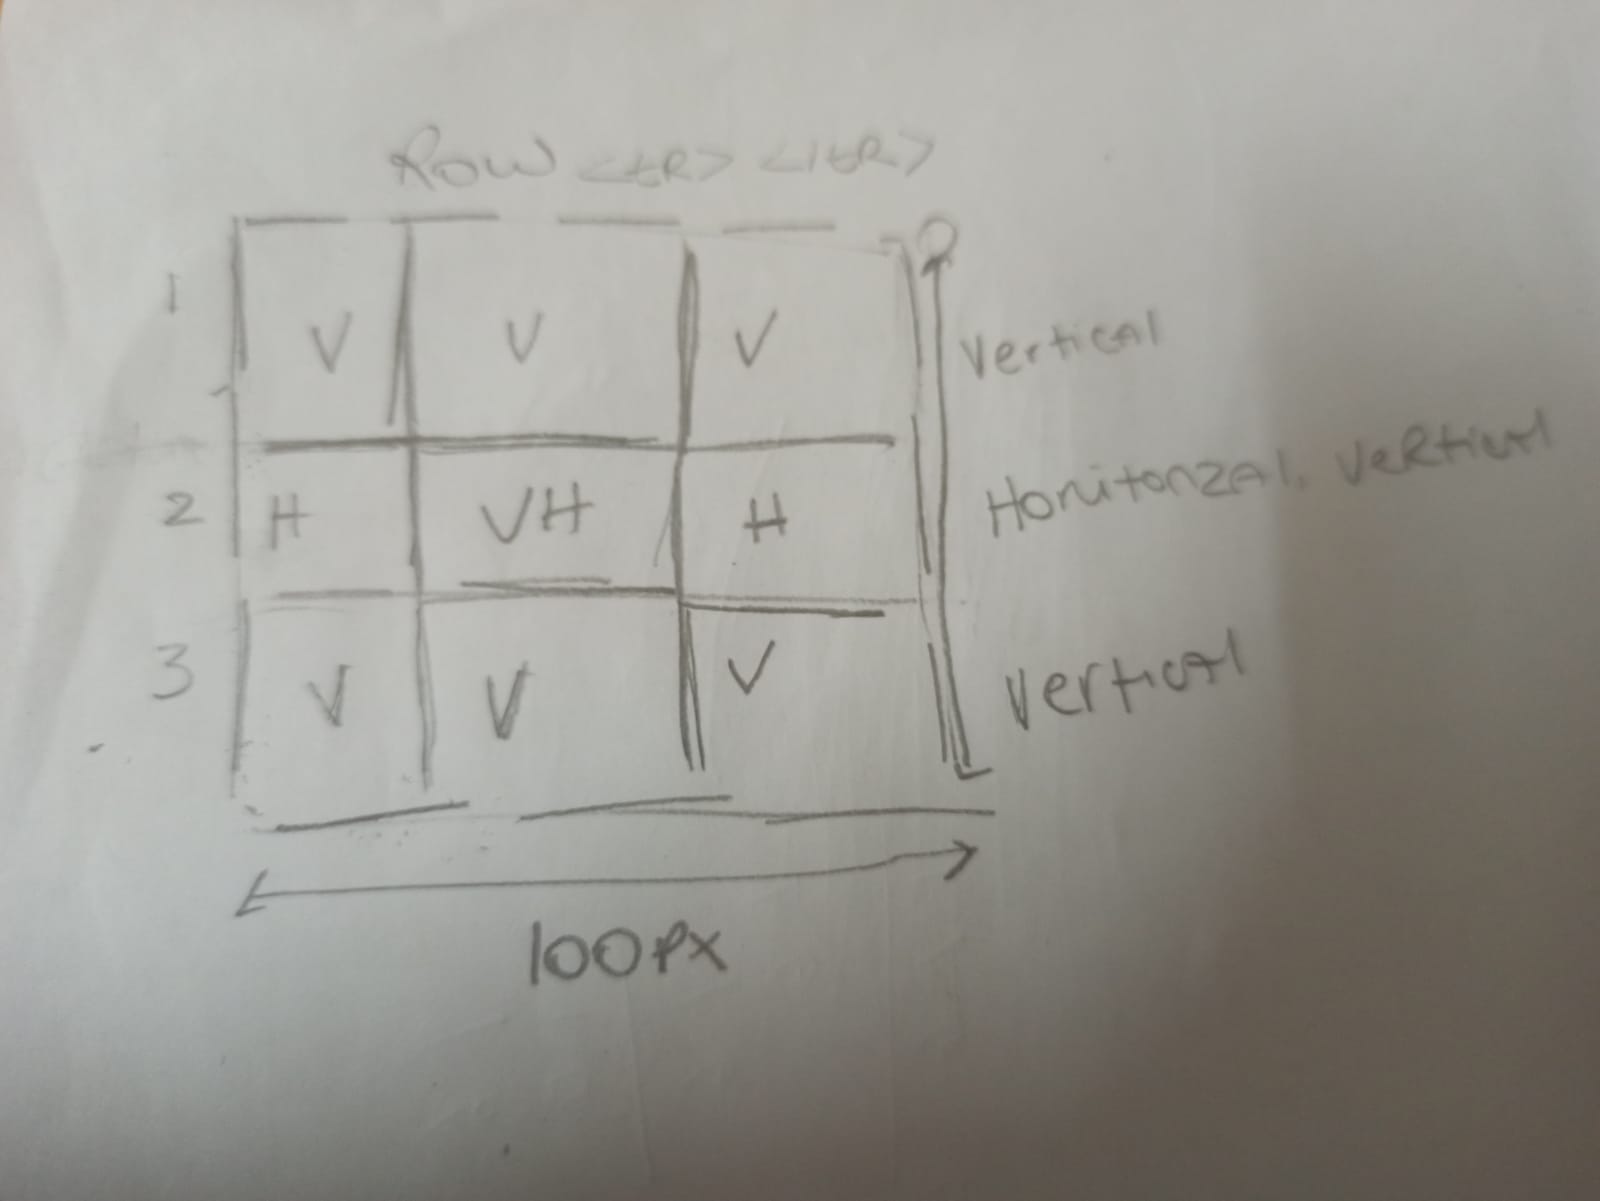 Row <tR> </tR>
1 V V V Vertical
2 H VH H Honitonzal, VeRtical
3 V V V Vertical
100px